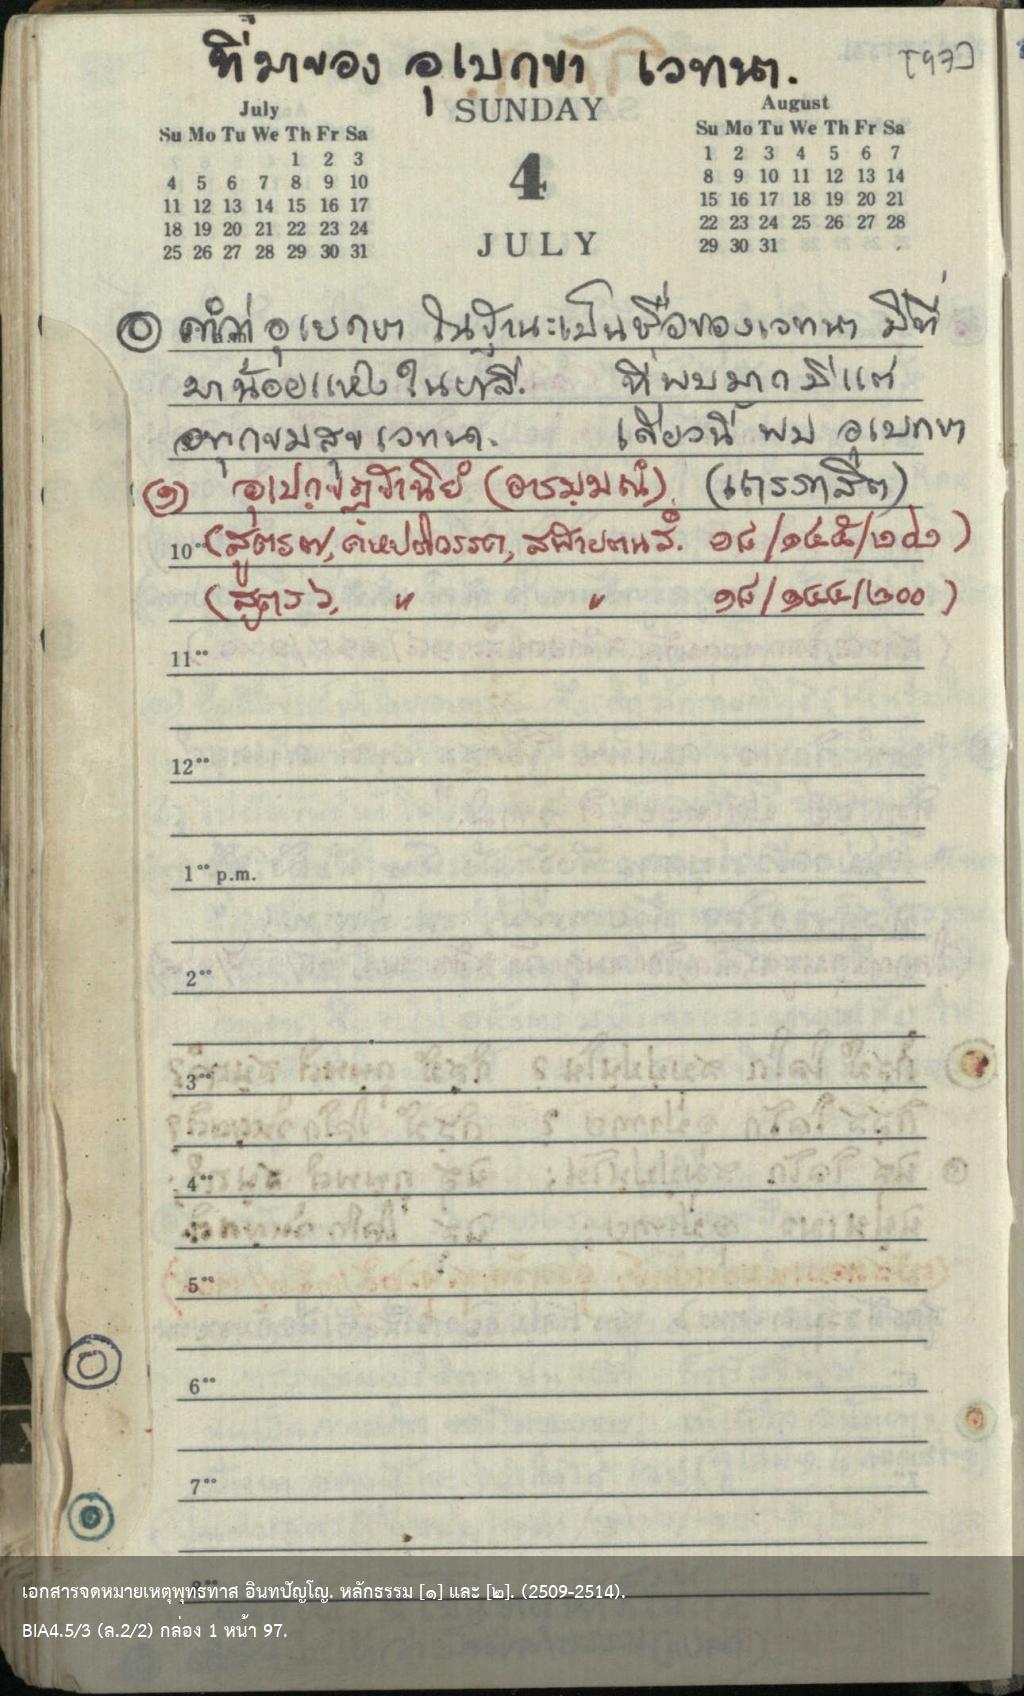 ที่มาของ อุเบกขา เวทนา.
[97]
July
Su Mo Tu We Th Fr Sa
1 2 3
4 5 6 7 8 9 10
11 12 13 14 15 16 17
18 19 20 21 22 23 24
25 26 27 28 29 30 31
SUNDAY
4
JULY
August
Su Mo Tu We Th Fr Sa
1 2 3 4 5 6 7
8 9 10 11 12 13 14
15 16 17 18 19 20 21
22 23 24 25 26 27 28
29 30 31
อุเบกขา ในฐานะเป็นชื่อของเวทนา มีที่
มาน้อยแห่งในบาลี. ที่พบมาก มีแต่
อทุกขมสุขเวทนา. เดี๋ยวนี้ พบ อุเบกขา
(๑) อุเปกฺขฏฺฐานิยํ (อารมฺมณํ)
10°° (สูตร๗, คหปติวรรค, สฬายตนสํ. ๑๘/๑๔๕/
(สูตร๖, " " ๑๘/๑๔๔/๒๐๐)
11°°
12°°
1°° p.m.
2°°
3°°
4°°
5°°
6°°
7°°
เอกสารจดหมายเหตุพุทธทาส อินทปัญโญ. หลักธรรม [๑] และ [๒]. (2509-2514).
BIA4.5/3 (ล.2/2) กล่อง 1 หน้า 97.